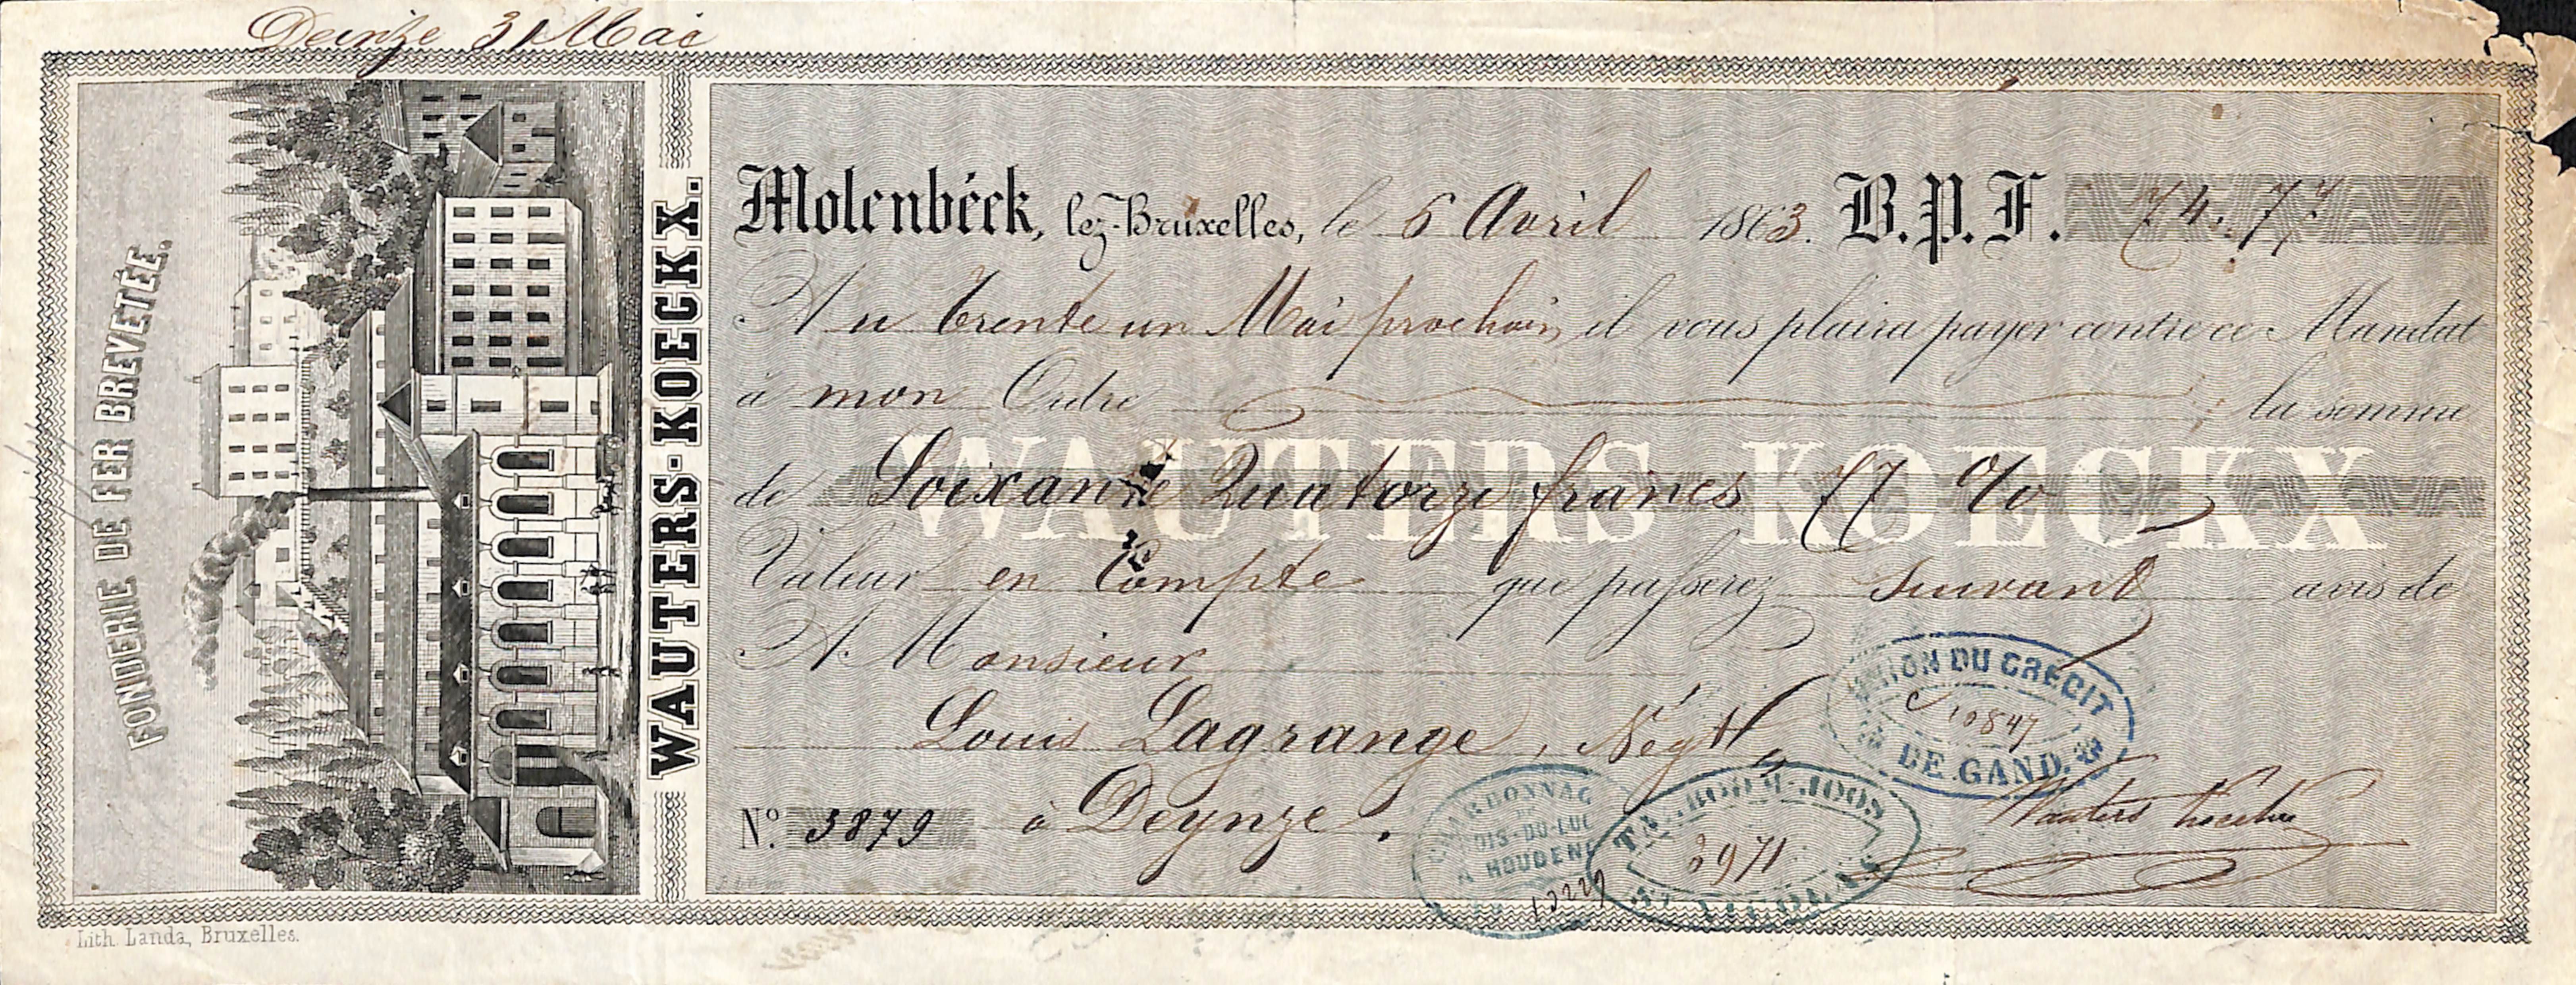 Deinze 31 Mai
FONDERIE DE FER BREVETÉE.
WAUTERS-KOECKX.
Molenbéck, lez-Bruxelles, le 6 Avril 1863. B.P.F. 74.77
Au trente un Mai prochain il vous plaira payer contre ce Mandat
à mon Ordre la somme
WAUTERS-KOECKX
de Soixante Quatorze francs 77 %
Valeur en Compte que passerez suivant avis de
A Monsieur
Louis Lagrange, Négt,
UNION DU CREDIT
10847
DE GAND.
Nº 3879 à Deynze.
Wauters Koeckx
CHARBONNAG
BOIS-DU-LUC
A HOUDENG
13229
JOOS
3971
Lith. Landa, Bruxelles.